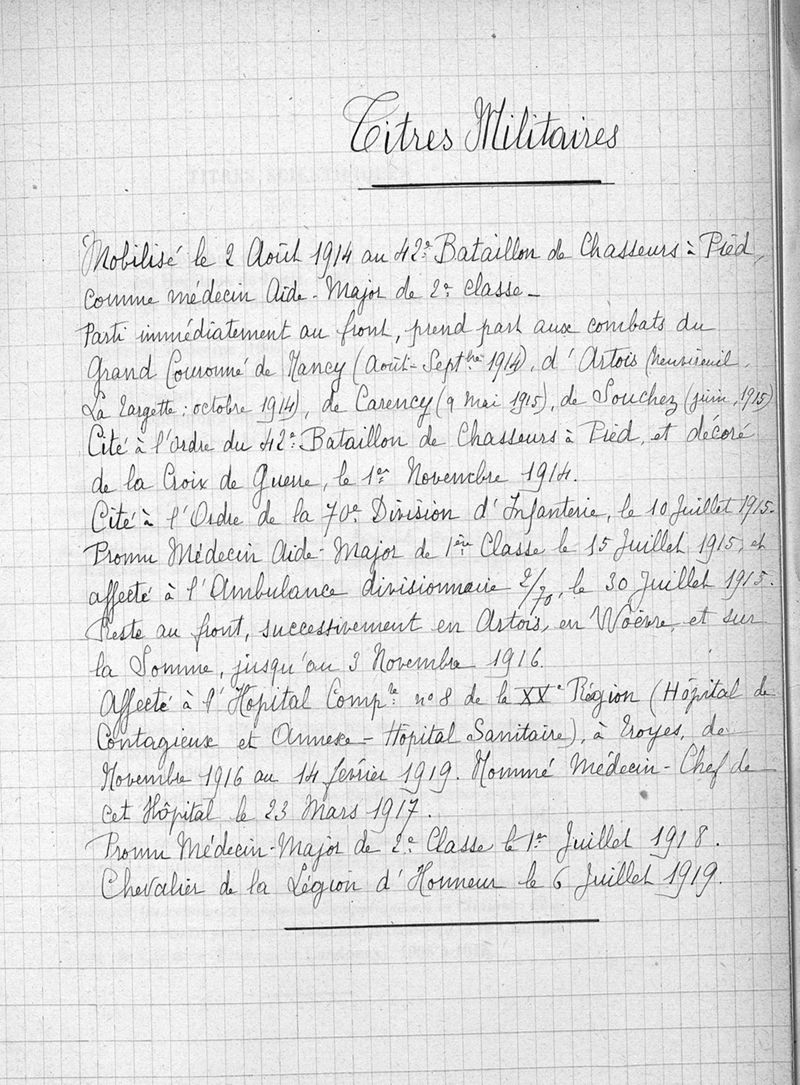 Titres Militaires
Mobilisé le 2 Août 1914 au 42e Bataillon de Chasseurs à Pied,
comme médecin Aide-Major de 2e classe_
Parti immédiatement au front, prend part aux combats du
Grand Couronné de Nancy (Août-Septbre 1914), d'Artois (Neuvireuil,
La Targette : octobre 1914), de Carency (9 mai 1915), de Souchez (juin, 1915)
Cité à l'ordre du 42e Bataillon de Chasseurs à Pied, et décoré
de la Croix de Guerre, le 1er Novembre 1914.
Cité à l'Ordre de la 70e Division d'Infanterie, le 10 Juillet 1915.
Promu Médecin Aide-Major de 1ère Classe le 15 Juillet 1915, et
affecté à l'Ambulance divisionnaire 2/70, le 30 Juillet 1915.
Reste au front, successivement en Artois, en Woëvre, et sur
la Somme, jusqu'au 3 Novembre 1916.
Affecté à l'Hôpital Comp.re no 8 de la XXe Région (Hôpital de
Contagieux et Annexe - Hôpital Sanitaire), à Troyes, de
Novembre 1916 au 14 février 1919. Nommé Médecin-Chef de
cet Hôpital le 23 Mars 1917.
Promu Médecin-Major de 2e Classe le 1er Juillet 1918.
Chevalier de la Légion d'Honneur le 6 Juillet 1919.